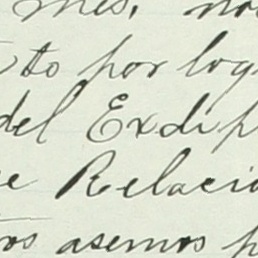 mes, no
to por log
del Exdip
e Relacio
ros asemos p